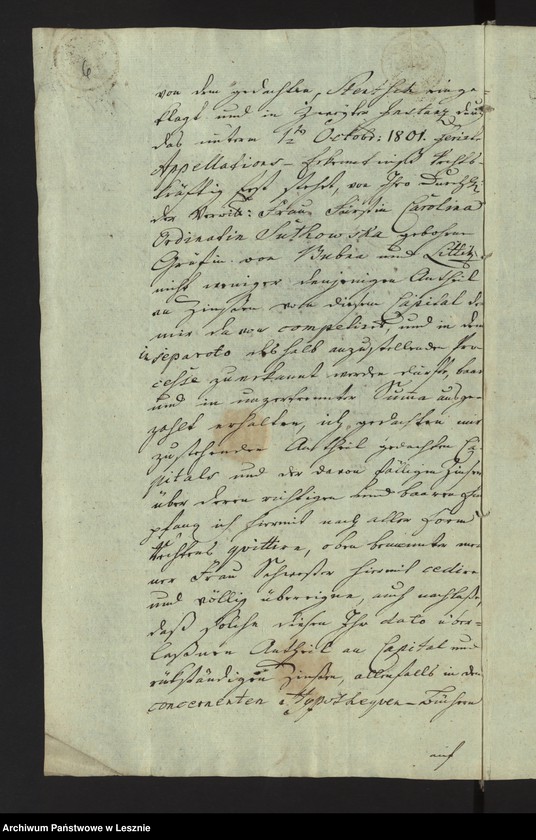 6
von dem gedachten, Stentsch einge-
klagt und in zweyter Instanz durch
das unterm 1ten Octobr: 1801. 
Appellations- Erkenntniß rechts-
kräftig fest steht, von Ihro Durchl:
der Verwit: Frau Fürstin Carolina
Ordinatin Sułkowska gebohrnen
Gräfin von Bubna und Littitz
nicht weniger denjenigen Antheil
an Zinßen von diesem Capital der
mir davon competiret, und in dem
in separato deshalb anzustellenden Pro-
cesse zuerkannt werden dürfte, baar
und in unzertrennter Suma ausge-
zahlt erhalten, ich gedachten mir
zustehenden Antheil gedachten Ca-
pitals und der davon fälligen Zinsen
über deren richtigen und baaren Em-
pfang ich hiermit nach aller Form
Rechtens quittire, oben benannter mei-
ner Frau Schwester hiermit cedire
und völlig übereigne, auch nachlaße,
daß Solche diesen Ihr dato über-
laßnen Antheil an Capital und
rükständigen Zinßen, allenfalls in den
concernenten Hypothequen-Büchern
auf
Archiwum Państwowe w Lesznie